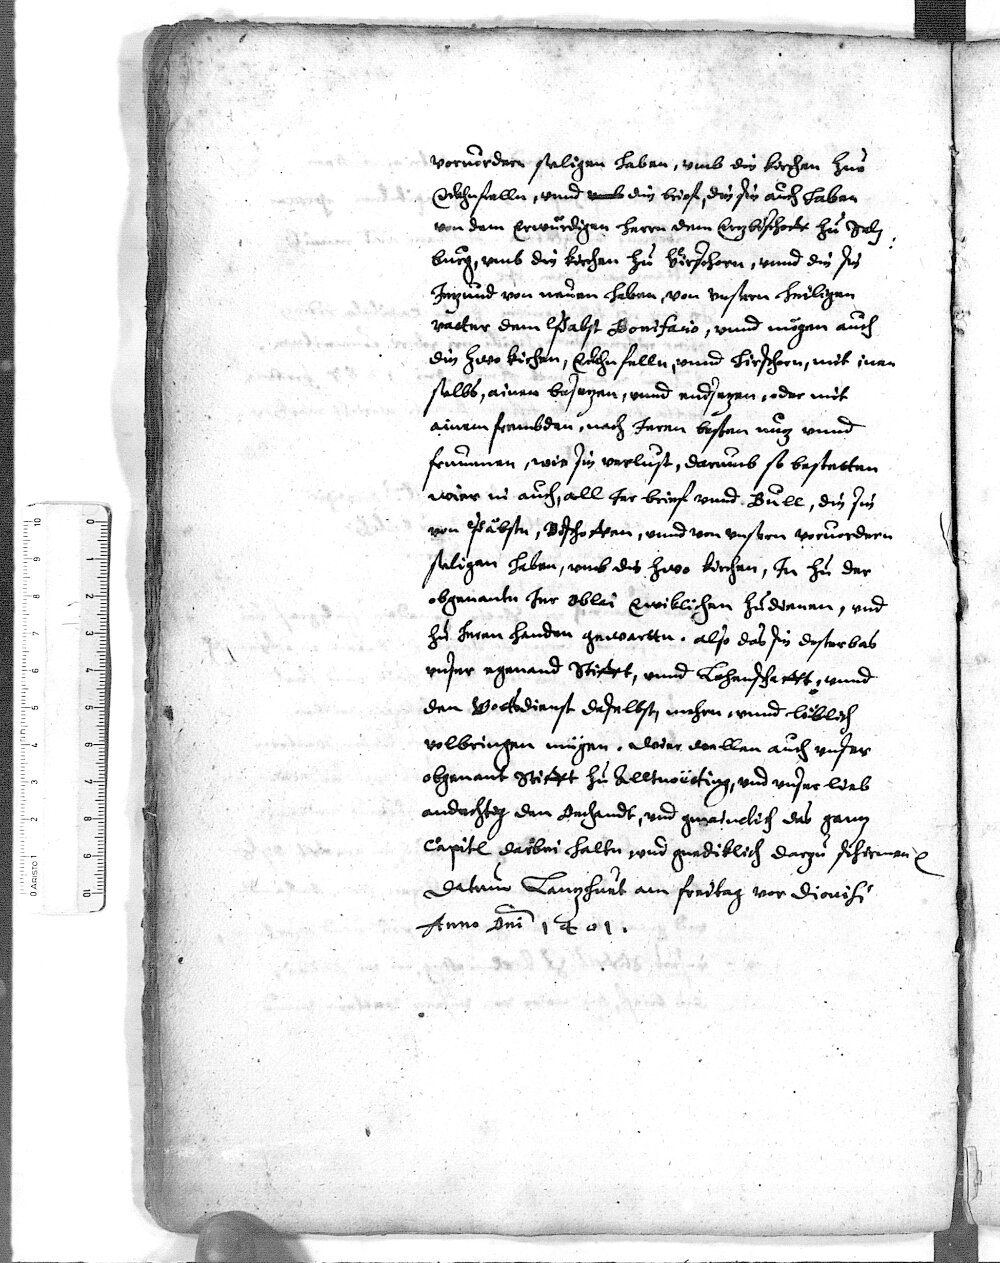 vorvordern saligen haben, umb die kirchen hze
Ekhnfelln, unnd umb die brief, die sie auch haben
von dem Erwürdigen herrn dem Erzbischove zu Salz,
burg, umb die kirchen zu hirschorn, unnd die sie
Jezund von neuen haben, von unserm heiligen
vatter dem Pabst Bonifacio, unnd mügen auch
die zwo kirchen, Ekhnfelln, unnd hirschorn, mit inen
selbs, ainen besezen, unnd endsezen, oder mit
ainem frembden, nach Jeren besten nuz unnd
frummen, wie sie verlust, darumb so bestetten
wier in auch, all Jer brief unnd Bull, die sie
von Päbsten, Bischoffen, unnd von unsern vorvordern
saligen haben, umb die zwo kirchen, In zu der
obgenantn Jer oblai Ewiklichen zudienen, und
zu Jeren handen gewarttn. also das sie dester bas
unser egenand Stifft, unnd Lehenschafft, unnd
den Gottsdienst daselbst, mehrn, unnd löblich
volbringen mügen. Wier wellen auch unser
obgenant Stifft zu Alltnötting, und unser lieb
andechtig den Dechandt, und gmainclich das ganz
Capitl darbei haltn, und gnediklich darzu schirmen
Datum Lanzhuet am freitag vor Dionisi
Anno Dni 1401.